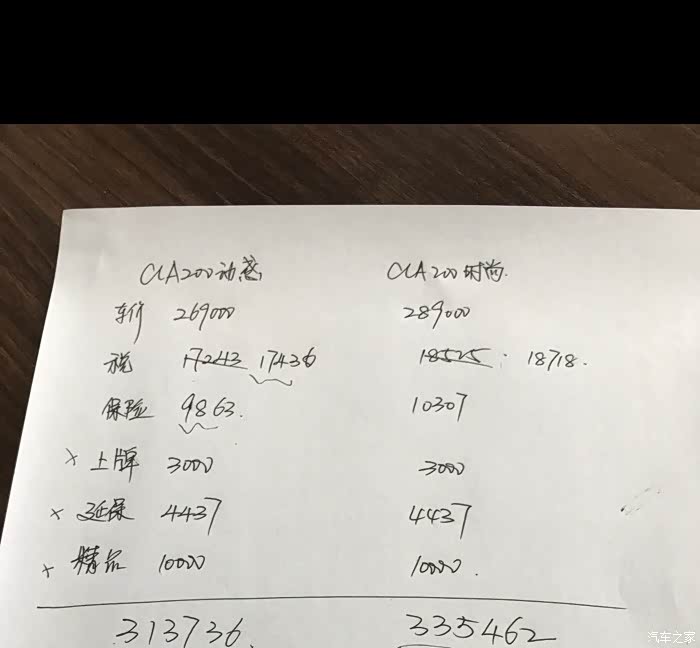 CLA200动感 CLA200时尚.
车价 269000 289000
税 17243 17436 18525 : 18718.
保险 9863. 10307
× 上牌 3000 3000
× 延保 4437 4437
× 精品 10000 10000.
313736. 335462
汽车之家